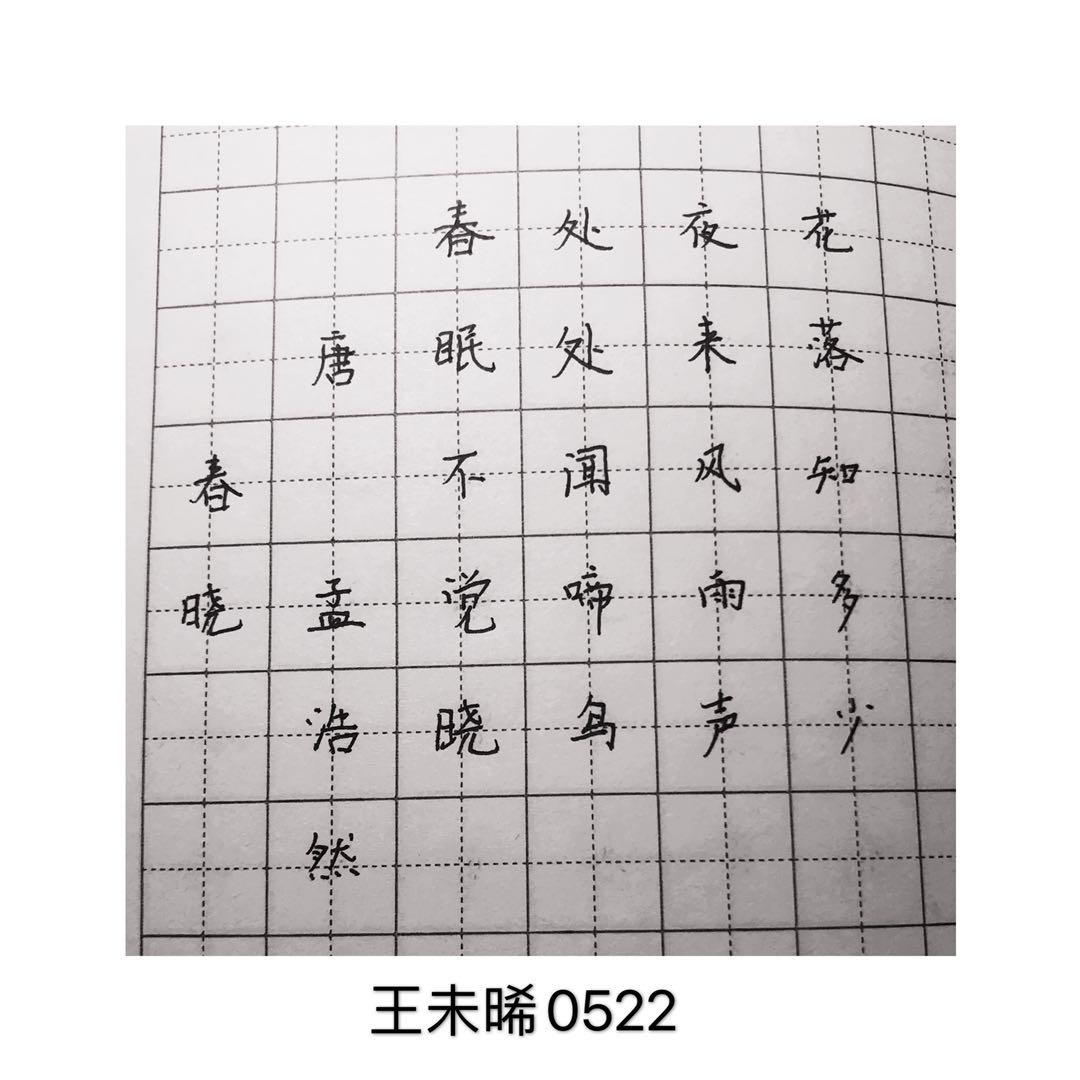 春晓
唐 孟浩然
春眠不觉晓
处处闻啼鸟
夜来风雨声
花落知多少
王未晞0522